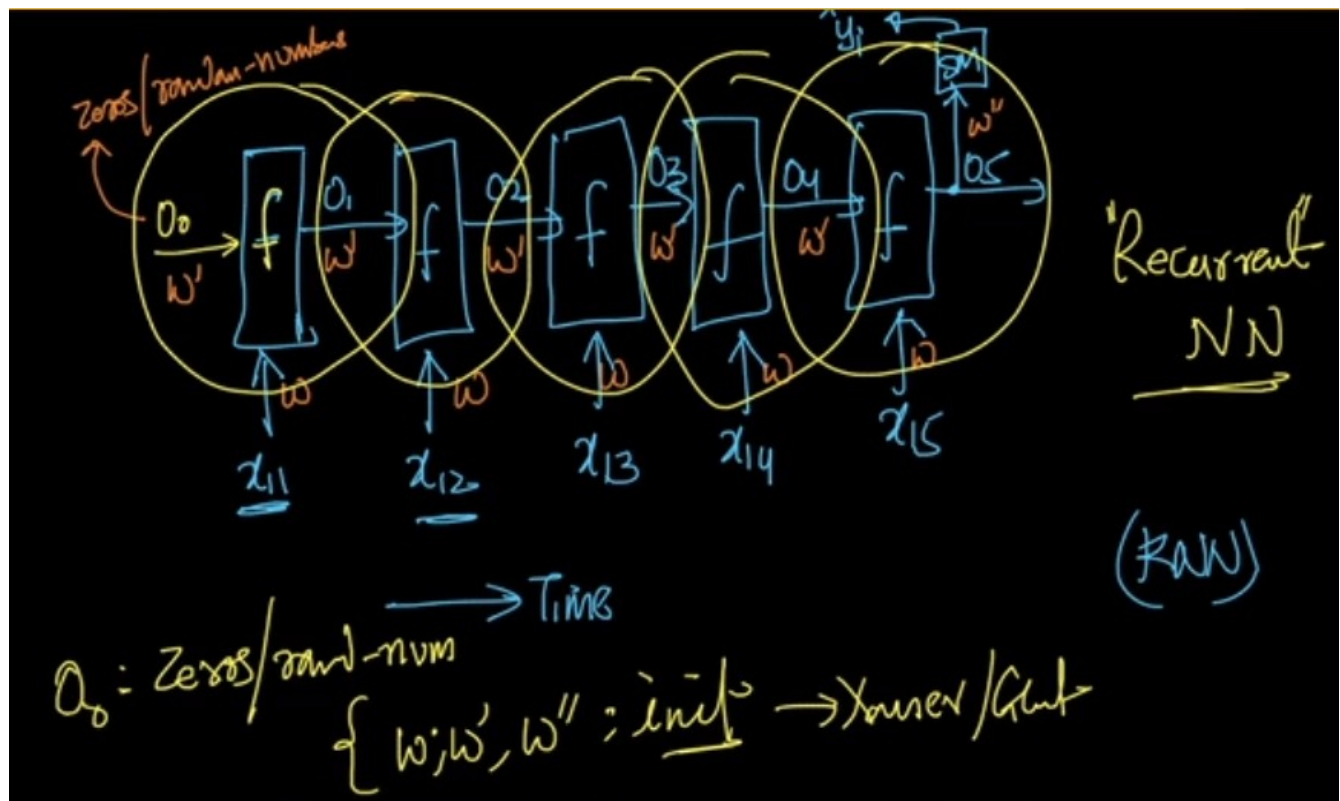 zeros/random-numbers
ŷi
SM
w''
O0 f O1 f O2 f O3 f O4 f O5
w' w' w' w' w'
w w w w w
x11 x12 x13 x14 x15
"Recurrent"
NN
(RNN)
Time
O0 : Zeros/rand-num
{ w, w', w'' : init → Xavier/Glorot